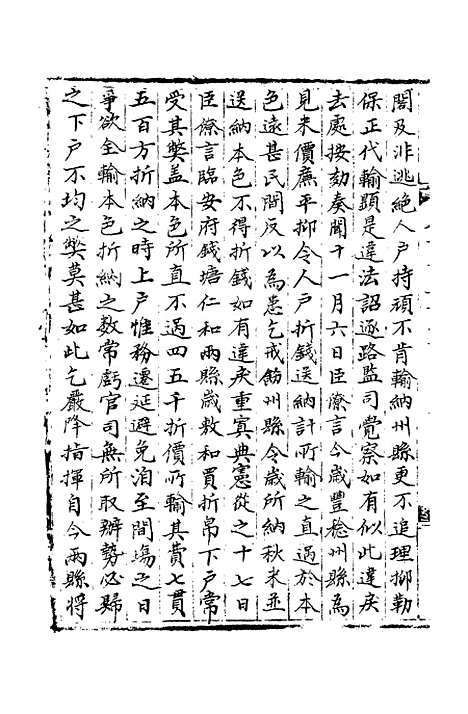 閣及非逃絕人戶持頑不肯輸納州縣更不追理抑勒
保正代輸顯是違法詔逐路監司覺察如有似此違戾
去處按劾奏聞十一月六日臣僚言今歲豐稔州縣為
見米價廉平抑令人戶折錢送納計所輸之直過於本
色遠甚民間反以為患乞戒飭州縣令歲所納秋米並
送納本色不得折錢如有違戾重寘典憲從之十七日
臣僚言臨安府錢塘仁和兩縣歲敷和買折帛下戶常
受其弊蓋本色所直不過四五千折價所輸其費七貫
五百方折納之時上戶惟務遷延避免洎至閣塲之日
爭欲全輸本色折納之數常虧官司無所取辦勢必歸
之下戶不均之弊莫甚如此乞嚴降指揮自今兩縣將